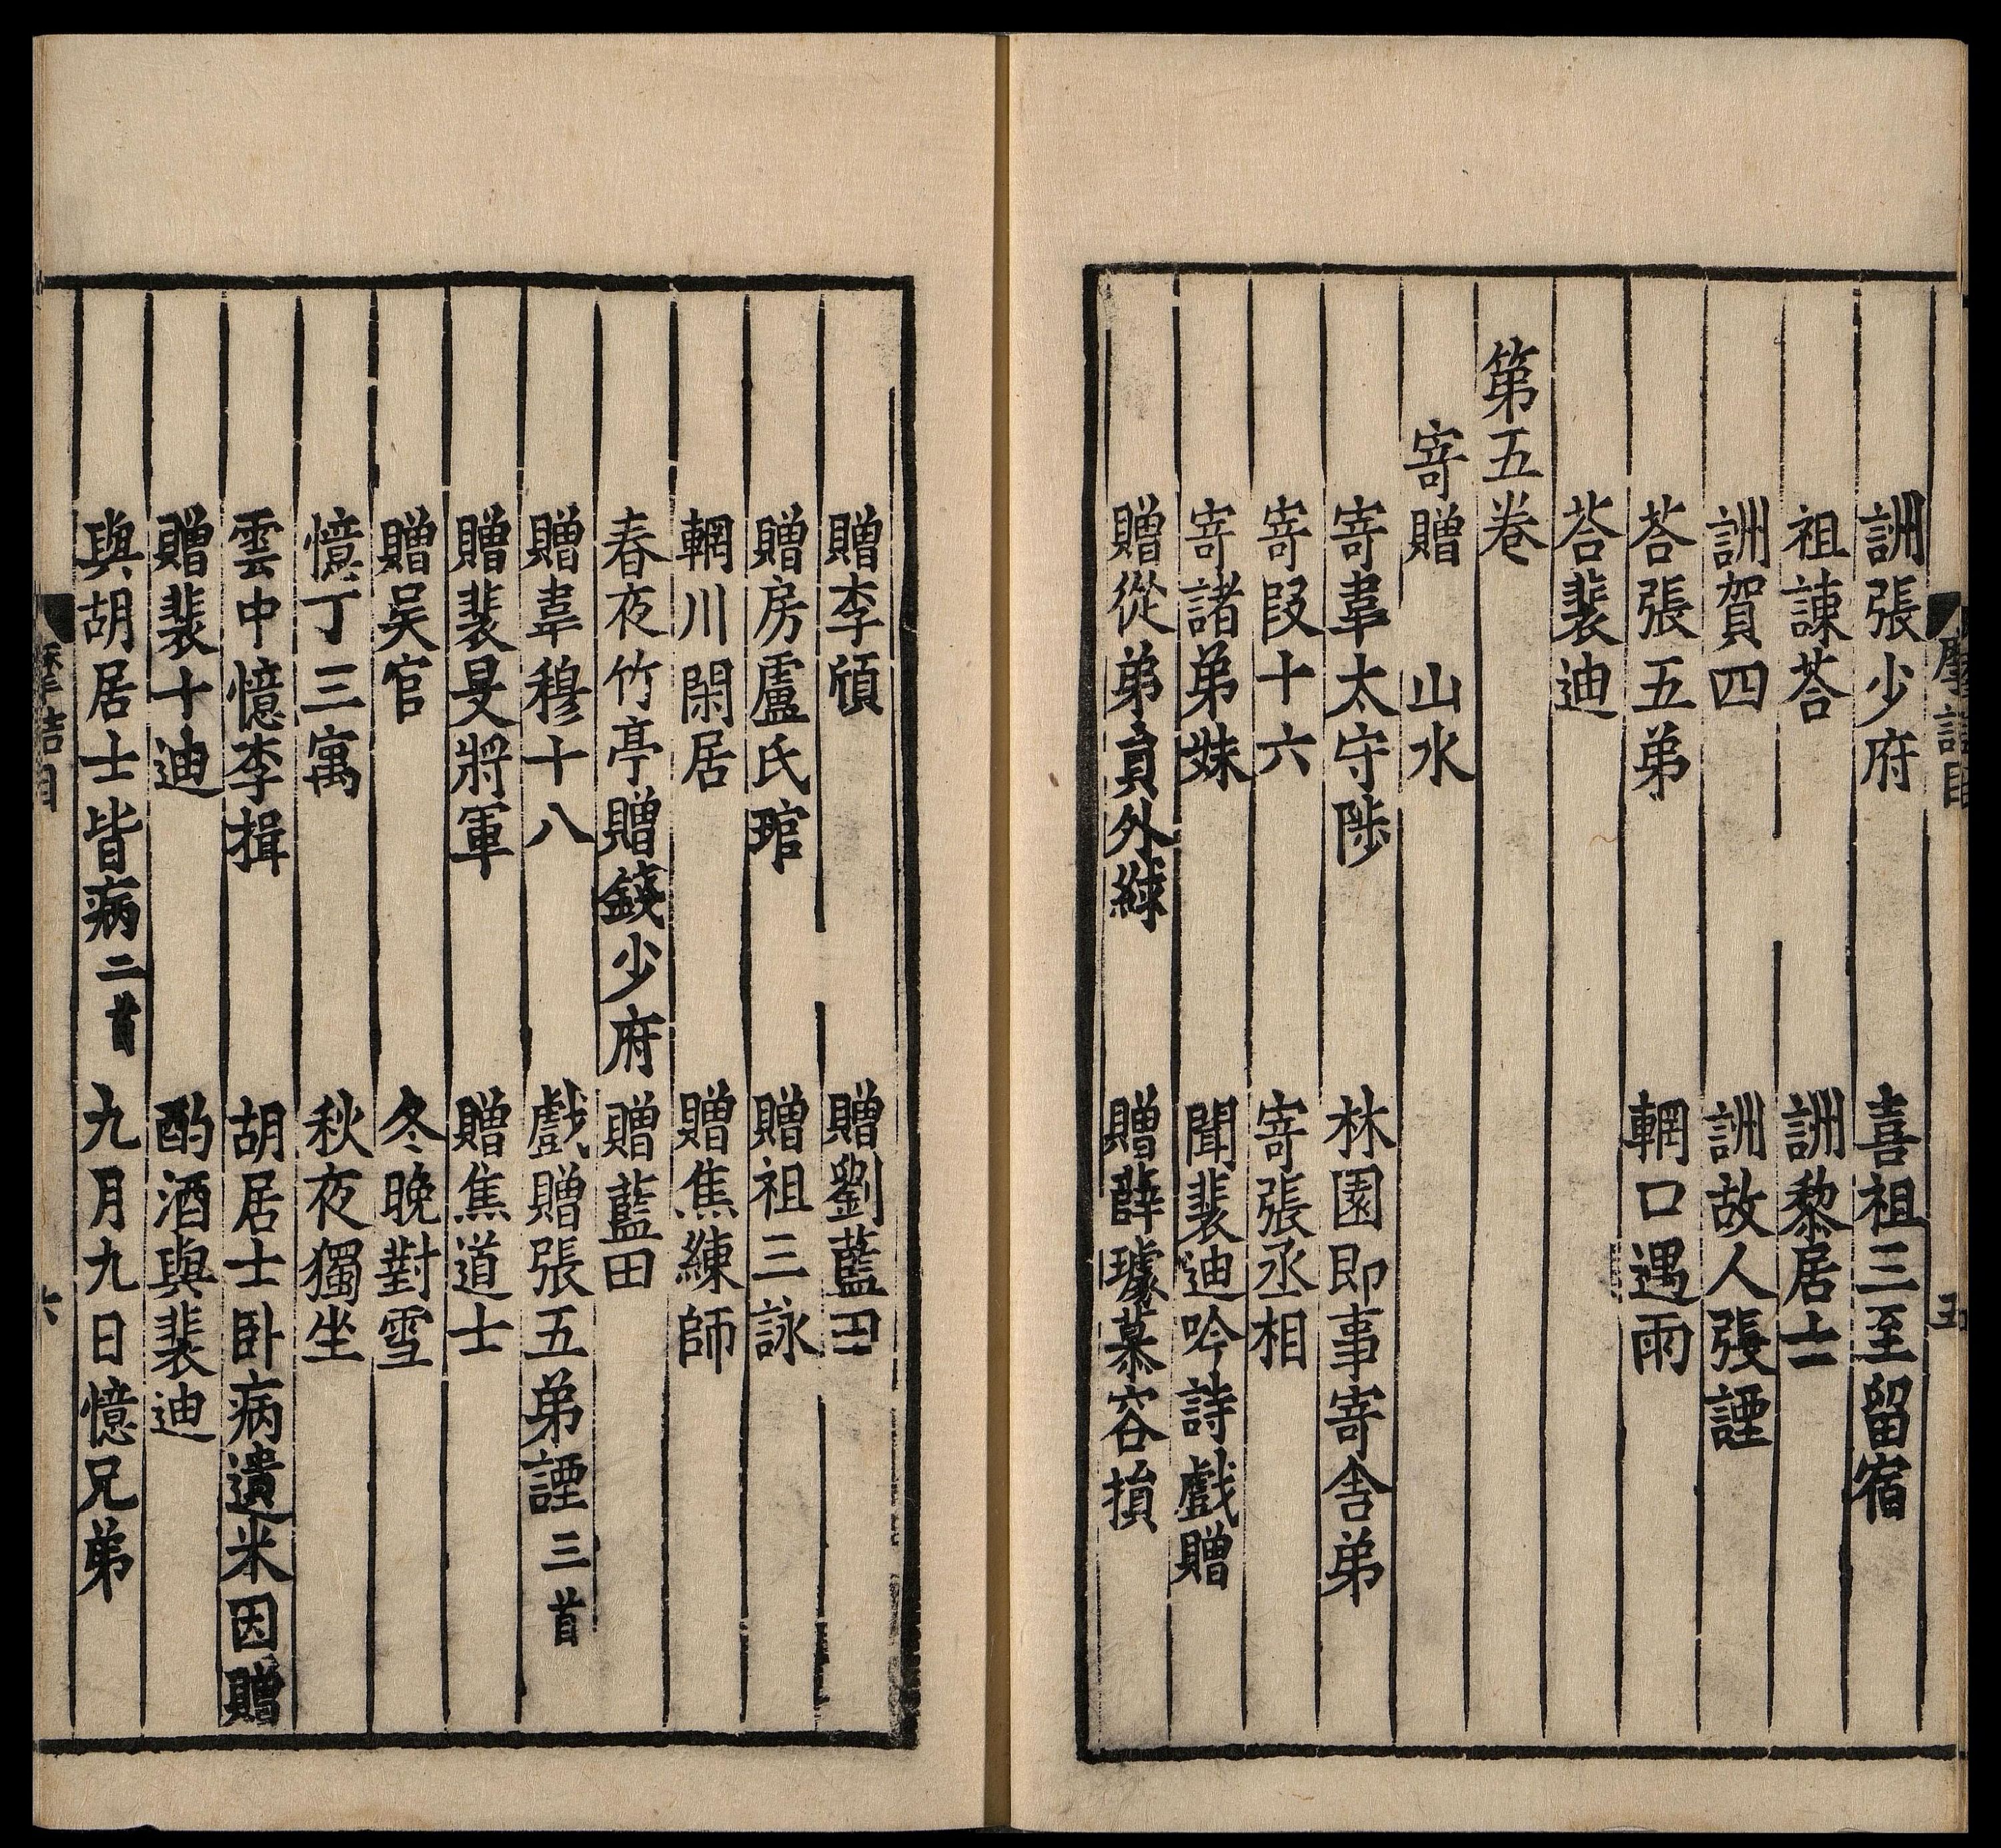 詶張少府　喜祖三至留宿
祖諌荅　詶黎居士
詶賀四　詶故人張諲
荅張五弟　輞口遇雨
荅裴迪
第五卷
寄贈　山水
寄韋太守陟　林園即事寄舍弟
寄段十六　寄張丞相
寄諸弟妹　聞裴迪吟詩戲贈
贈從弟員外絿　贈薛璩慕容損
贈李頎　贈劉藍田
贈房盧氏琯　贈祖三詠
輞川閑居　贈焦練師
春夜竹亭贈錢少府　贈藍田
贈韋穆十八　戲贈張五弟諲三首
贈裴旻將軍　贈焦道士
贈吴官　冬晚對雪
憶丁三寓　秋夜獨坐
雲中憶李揖　胡居士卧病遺米因贈
贈裴十迪　酌酒與裴迪
與胡居士皆病二首　九月九日憶兄弟
六